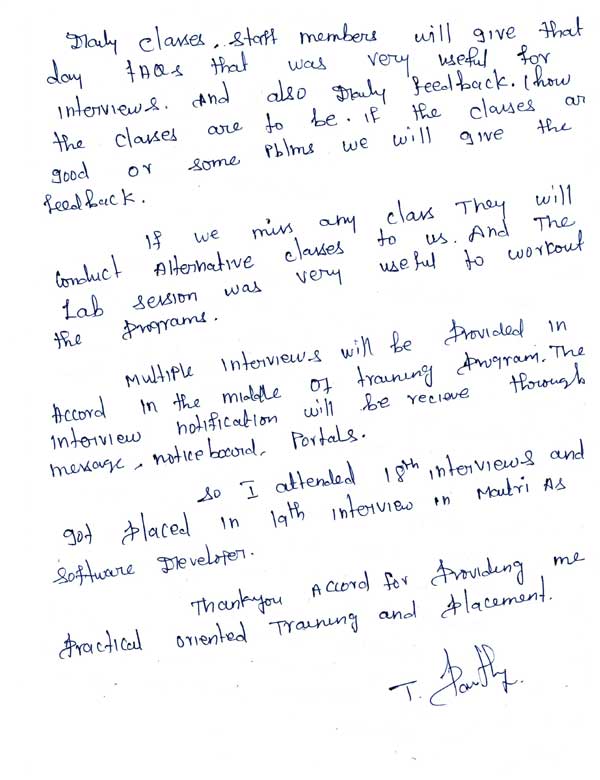 Daily classes, staff members will give that
day FAQs that was very useful for
interviews. And also Daily feedback. (how
the classes are to be. if the classes ar
good or some Pblms we will give the
feedback.
If we miss any class They will
conduct Alternative classes to us. And The
Lab session was very useful to workout
the programs.
Multiple Interviews will be provided in
Accord in the middle of training program. The
interview notification will be recieve thorough
message, notice board, Portals.
so I attended 18th interviews and
got placed in 19th interview in Mantri As
software Developer.
Thankyou Accord for providing me
practical oriented Training and placement.
T.